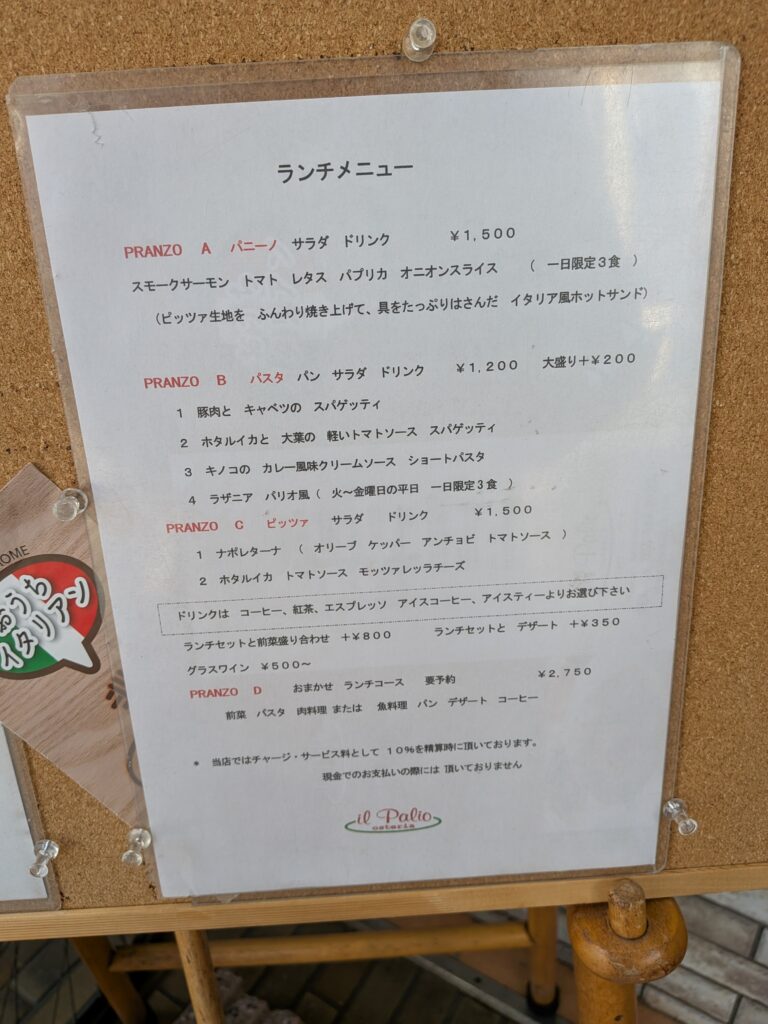 ランチメニュー
PRANZO A パニーノ サラダ ドリンク ￥１,５００
スモークサーモン トマト レタス パプリカ オニオンスライス （ 一日限定３食 ）
（ピッツァ生地を ふんわり焼き上げて、具をたっぷりはさんだ イタリア風ホットサンド）
PRANZO B パスタ パン サラダ ドリンク ￥１,２００ 大盛り＋￥２００
１ 豚肉と キャベツの スパゲッティ
２ ホタルイカと 大葉の 軽いトマトソース スパゲッティ
３ キノコの カレー風味クリームソース ショートパスタ
４ ラザニア パリオ風（ 火～金曜日の平日 一日限定３食 ）
PRANZO C ピッツァ サラダ ドリンク ￥１,５００
１ ナポレターナ （ オリーブ ケッパー アンチョビ トマトソース ）
２ ホタルイカ トマトソース モッツァレッラチーズ
ドリンクは コーヒー、紅茶、エスプレッソ アイスコーヒー、アイスティーよりお選び下さい
ランチセットと前菜盛り合わせ ＋￥８００ ランチセットと デザート ＋￥３５０
グラスワイン ￥５００～
PRANZO D おまかせ ランチコース 要予約 ￥２,７５０
前菜 パスタ 肉料理 または 魚料理 パン デザート コーヒー
＊ 当店ではチャージ・サービス料として １０％を精算時に頂いております。
現金でのお支払いの際には 頂いておりません
il Palio
osteria
OME
おうち
イタリアン